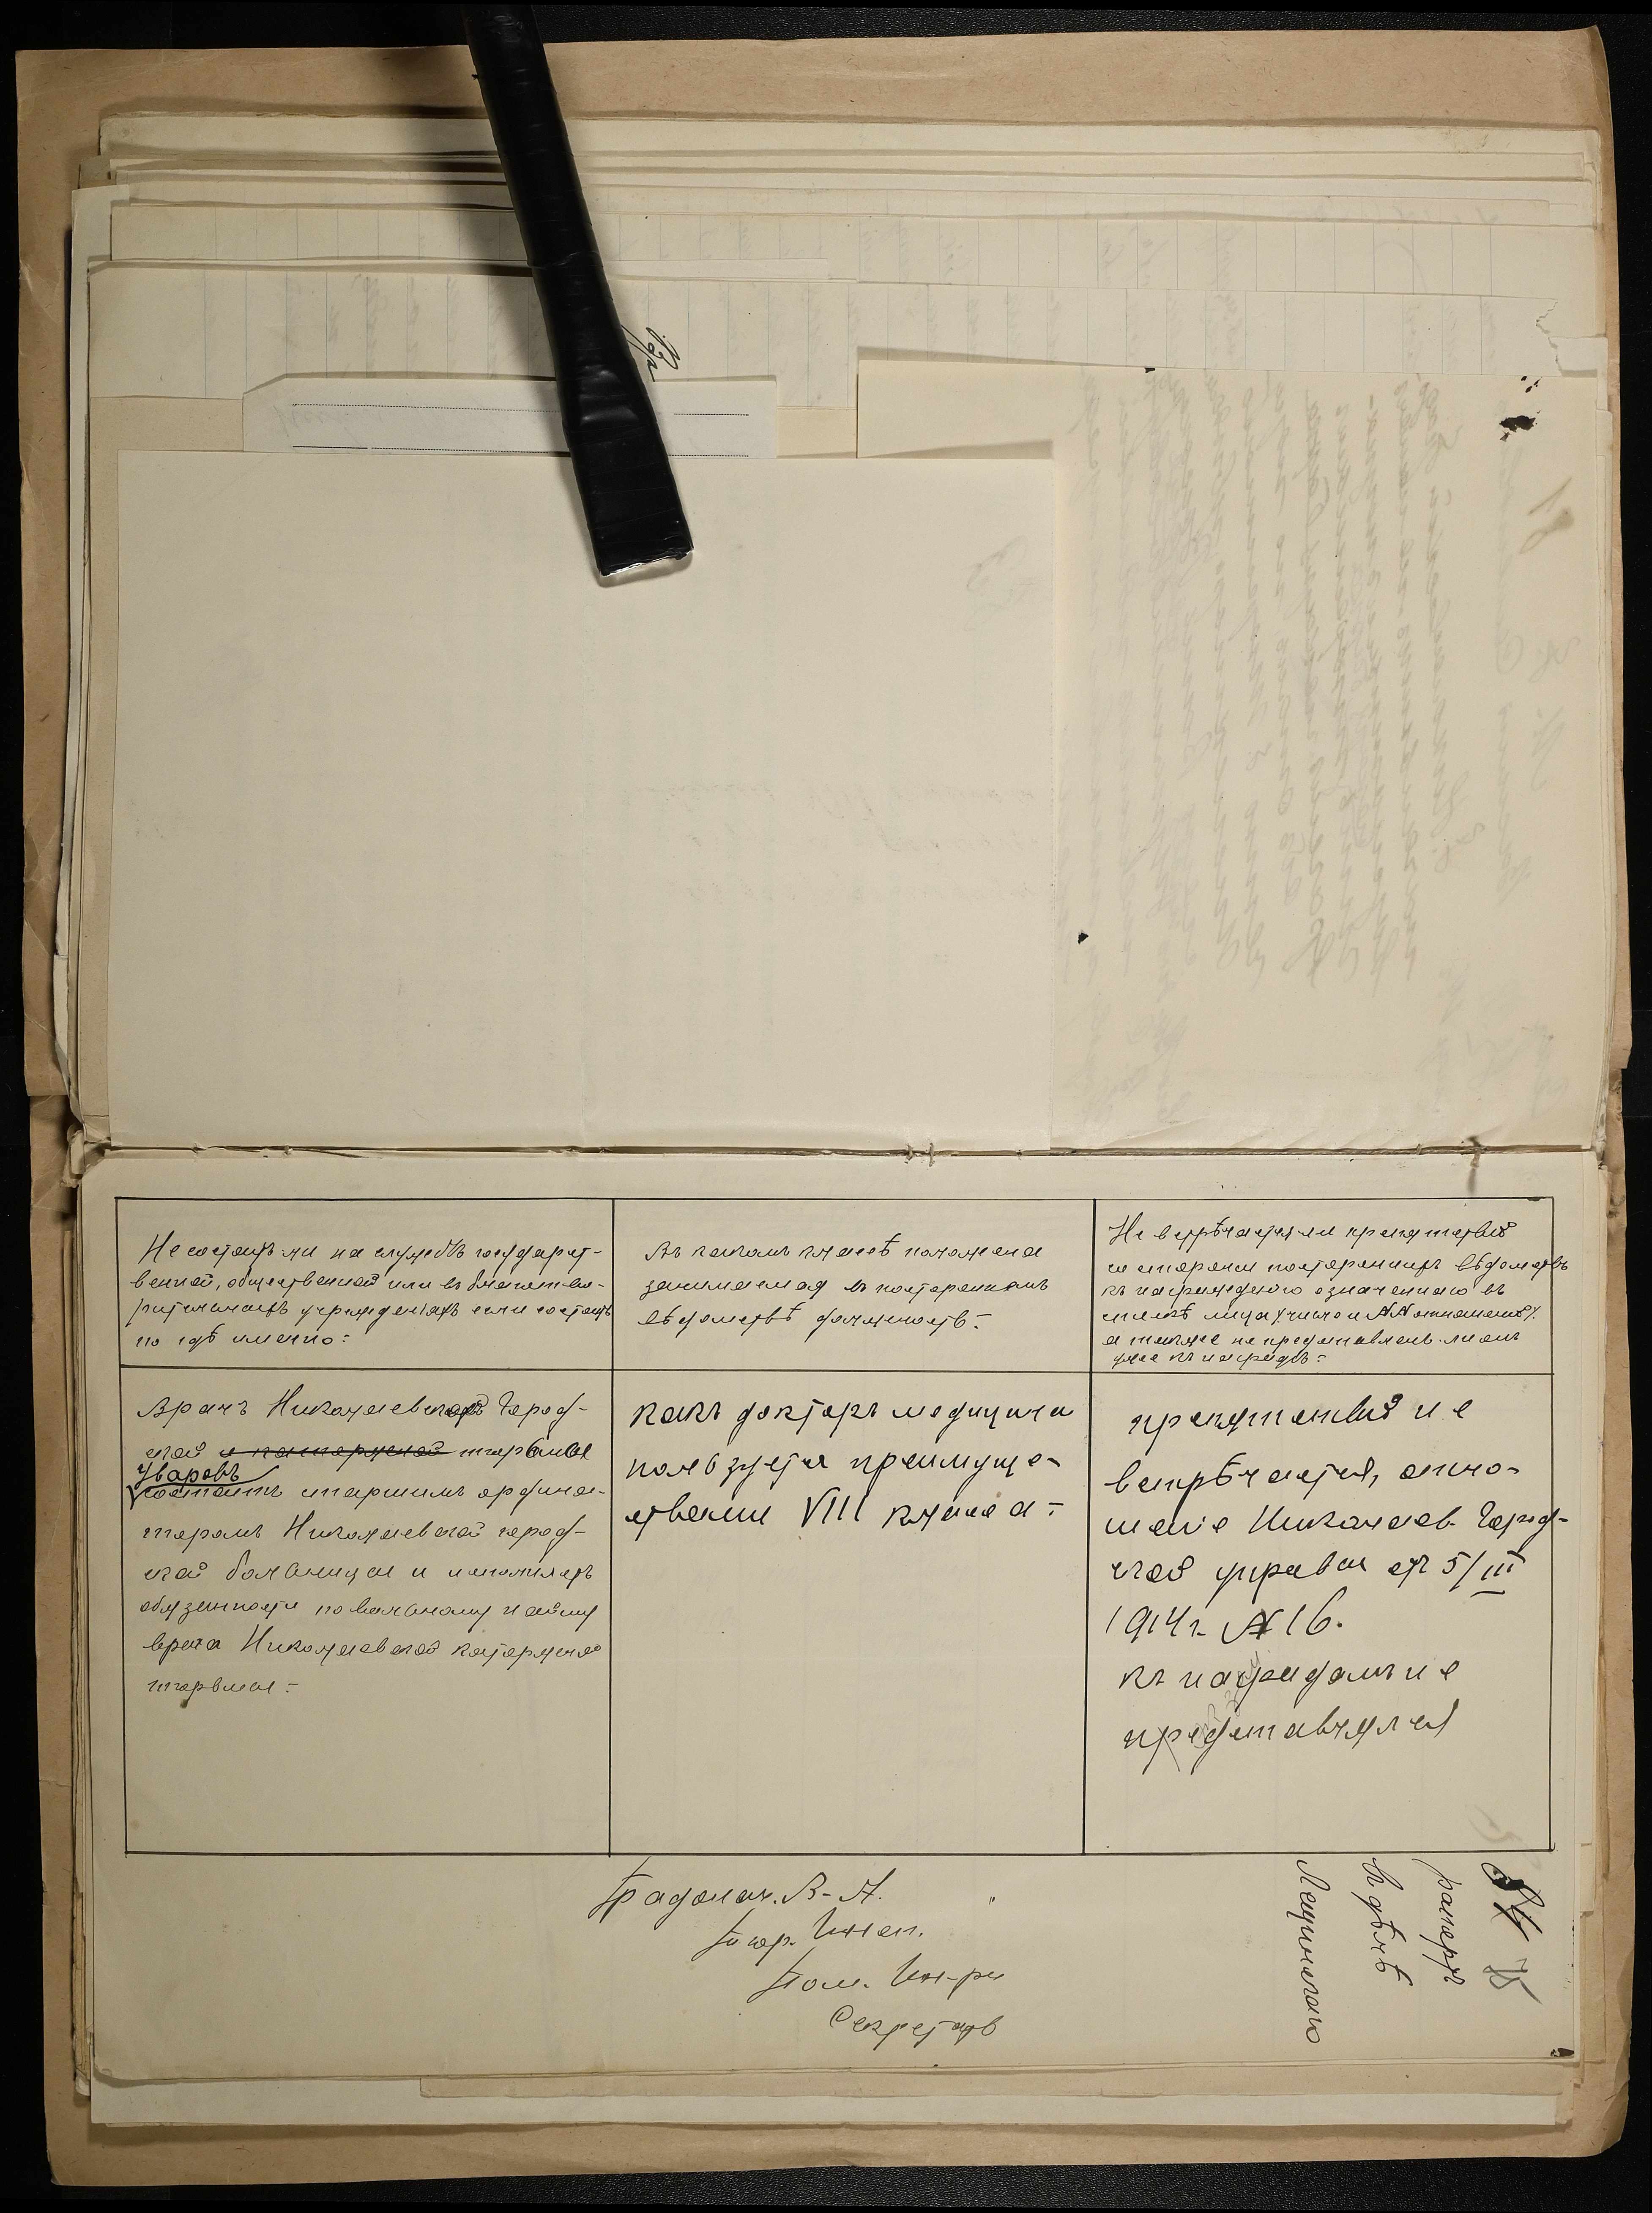 Не состоитъ ли на службѣ государст-
венной, общественной или въ благотво-
рительныхъ учрежденіяхъ если состоитъ
то гдѣ именно:
Въ какомъ классѣ положена
занимаемая въ постороннемъ
вѣдомствѣ должность:
Не встрѣчается ли препятствій
со стороны постороннихъ вѣдомствъ
къ награжденію означеннаго въ
спискѣ лица /число и №№ отношеній/.
а также не представленъ ли онъ
уже къ наградѣ:
Врачъ Николаевской Город-
ской и каторжной тюрьмы
Уваровъ
состоитъ старшимъ ордина-
торомъ Николаевской город-
ской больницы и исполняетъ
обязанности по вольному найму
врача Николаевской каторжной
тюрьмы:
какъ докторъ медицины
пользуется преимуще-
ствами VIII класса:
препятствій не
встрѣчается, отно-
шеніе Николаев. Город-
ской управы отъ 5/III
1914 г. № 16.
къ наградамъ не
представлялся
Градонач. В-А.
Тюр. Инсп.
Пом. Ин-ра
Секретарь
въ дѣлѣ